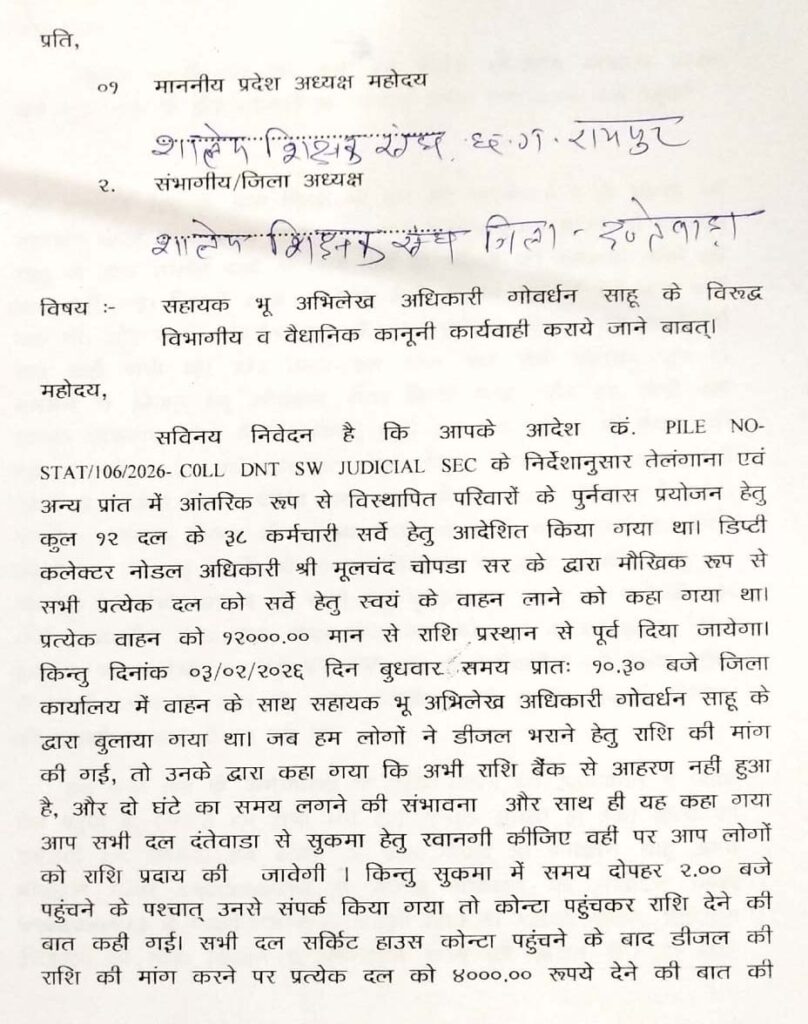 प्रति,
०१ माननीय प्रदेश अध्यक्ष महोदय
शालेय शिक्षक संघ छ.ग. रायपुर
२. संभागीय/जिला अध्यक्ष
शालेय शिक्षक संघ जिला - दन्तेवाड़ा
विषय :- सहायक भू अभिलेख अधिकारी गोवर्धन साहू के विरूद्ध
विभागीय व वैधानिक कानूनी कार्यवाही कराये जाने बाबत्।
महोदय,
सविनय निवेदन है कि आपके आदेश कं. PILE NO-
STAT/106/2026- C0LL DNT SW JUDICIAL SEC के निर्देशानुसार तेलंगाना एवं
अन्य प्रांत में आंतरिक रूप से विस्थापित परिवारों के पुर्नवास प्रयोजन हेतु
कुल १२ दल के ३८ कर्मचारी सर्वे हेतु आदेशित किया गया था। डिप्टी
कलेक्टर नोडल अधिकारी श्री मूलचंद चोपडा सर के द्वारा मौखिक रूप से
सभी प्रत्येक दल को सर्वे हेतु स्वयं के वाहन लाने को कहा गया था।
प्रत्येक वाहन को १२०००.०० मान से राशि प्रस्थान से पूर्व दिया जायेगा।
किन्तु दिनांक ०३/०२/२०२६ दिन बुधवार समय प्रातः १०.३० बजे जिला
कार्यालय में वाहन के साथ सहायक भू अभिलेख अधिकारी गोवर्धन साहू के
द्वारा बुलाया गया था। जब हम लोगों ने डीजल भराने हेतु राशि की मांग
की गई, तो उनके द्वारा कहा गया कि अभी राशि बैंक से आहरण नहीं हुआ
है, और दो घंटे का समय लगने की संभावना और साथ ही यह कहा गया
आप सभी दल दंतेवाडा से सुकमा हेतु रवानगी कीजिए वही पर आप लोगों
को राशि प्रदाय की जावेगी । किन्तु सुकमा में समय दोपहर २.०० बजे
पहुंचने के पश्चात् उनसे संपर्क किया गया तो कोन्टा पहुंचकर राशि देने की
बात कही गई। सभी दल सर्किट हाउस कोन्टा पहुंचने के बाद डीजल की
राशि की मांग करने पर प्रत्येक दल को ४०००.०० रूपये देने की बात की